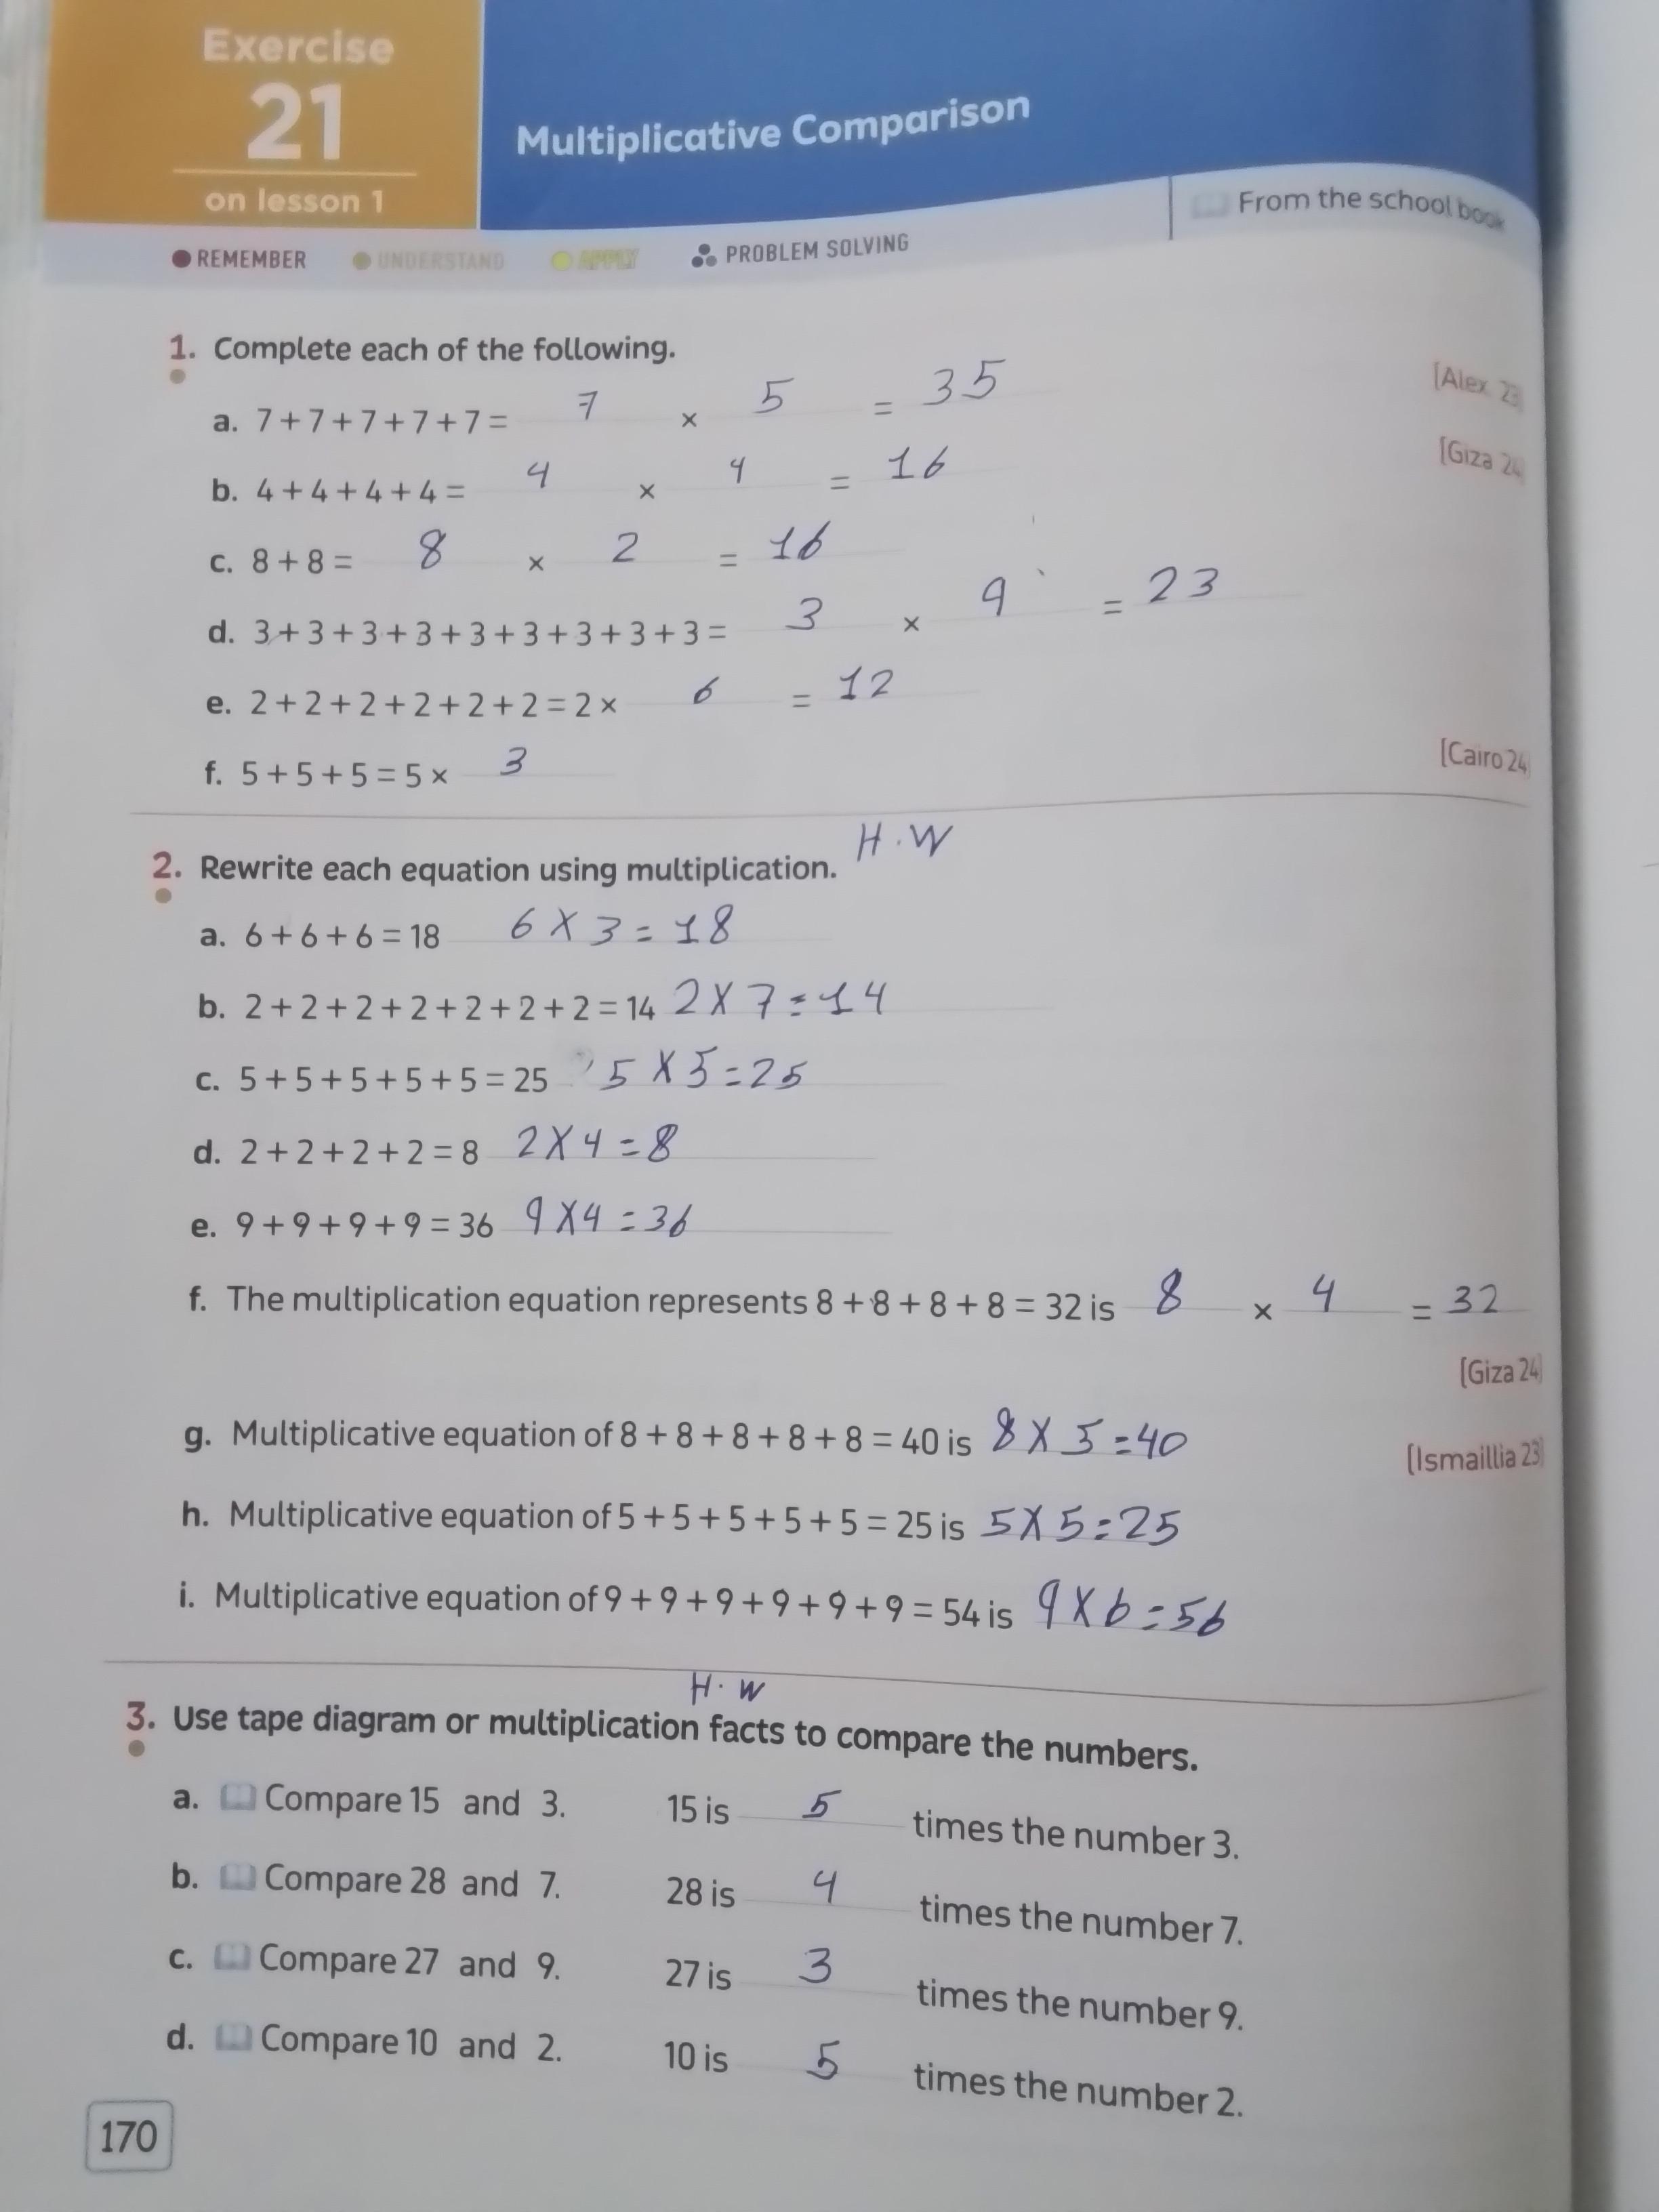 Exercise
21
on lesson 1
Multiplicative Comparison
From the school book
REMEMBER UNDERSTAND APPLY PROBLEM SOLVING
1. Complete each of the following.
a. 7 + 7 + 7 + 7 + 7 = 7 × 5 = 35 [Alex. 23]
b. 4 + 4 + 4 + 4 = 4 × 4 = 16 [Giza 24]
c. 8 + 8 = 8 × 2 = 16
d. 3 + 3 + 3 + 3 + 3 + 3 + 3 + 3 + 3 = 3 × 9 = 23
e. 2 + 2 + 2 + 2 + 2 + 2 = 2 × 6 = 12
f. 5 + 5 + 5 = 5 × 3 [Cairo 24]
2. Rewrite each equation using multiplication. H.W
a. 6 + 6 + 6 = 18 6 X 3 = 18
b. 2 + 2 + 2 + 2 + 2 + 2 + 2 = 14 2 X 7 = 14
c. 5 + 5 + 5 + 5 + 5 = 25 5 X 5 = 25
d. 2 + 2 + 2 + 2 = 8 2 X 4 = 8
e. 9 + 9 + 9 + 9 = 36 9 X 4 = 36
f. The multiplication equation represents 8 + 8 + 8 + 8 = 32 is 8 × 4 = 32
[Giza 24]
g. Multiplicative equation of 8 + 8 + 8 + 8 + 8 = 40 is 8 X 5 = 40 [Ismaillia 23]
h. Multiplicative equation of 5 + 5 + 5 + 5 + 5 = 25 is 5 X 5 = 25
i. Multiplicative equation of 9 + 9 + 9 + 9 + 9 + 9 = 54 is 9 X 6 = 56
H.W
3. Use tape diagram or multiplication facts to compare the numbers.
a. Compare 15 and 3. 15 is 5 times the number 3.
b. Compare 28 and 7. 28 is 4 times the number 7.
c. Compare 27 and 9. 27 is 3 times the number 9.
d. Compare 10 and 2. 10 is 5 times the number 2.
170